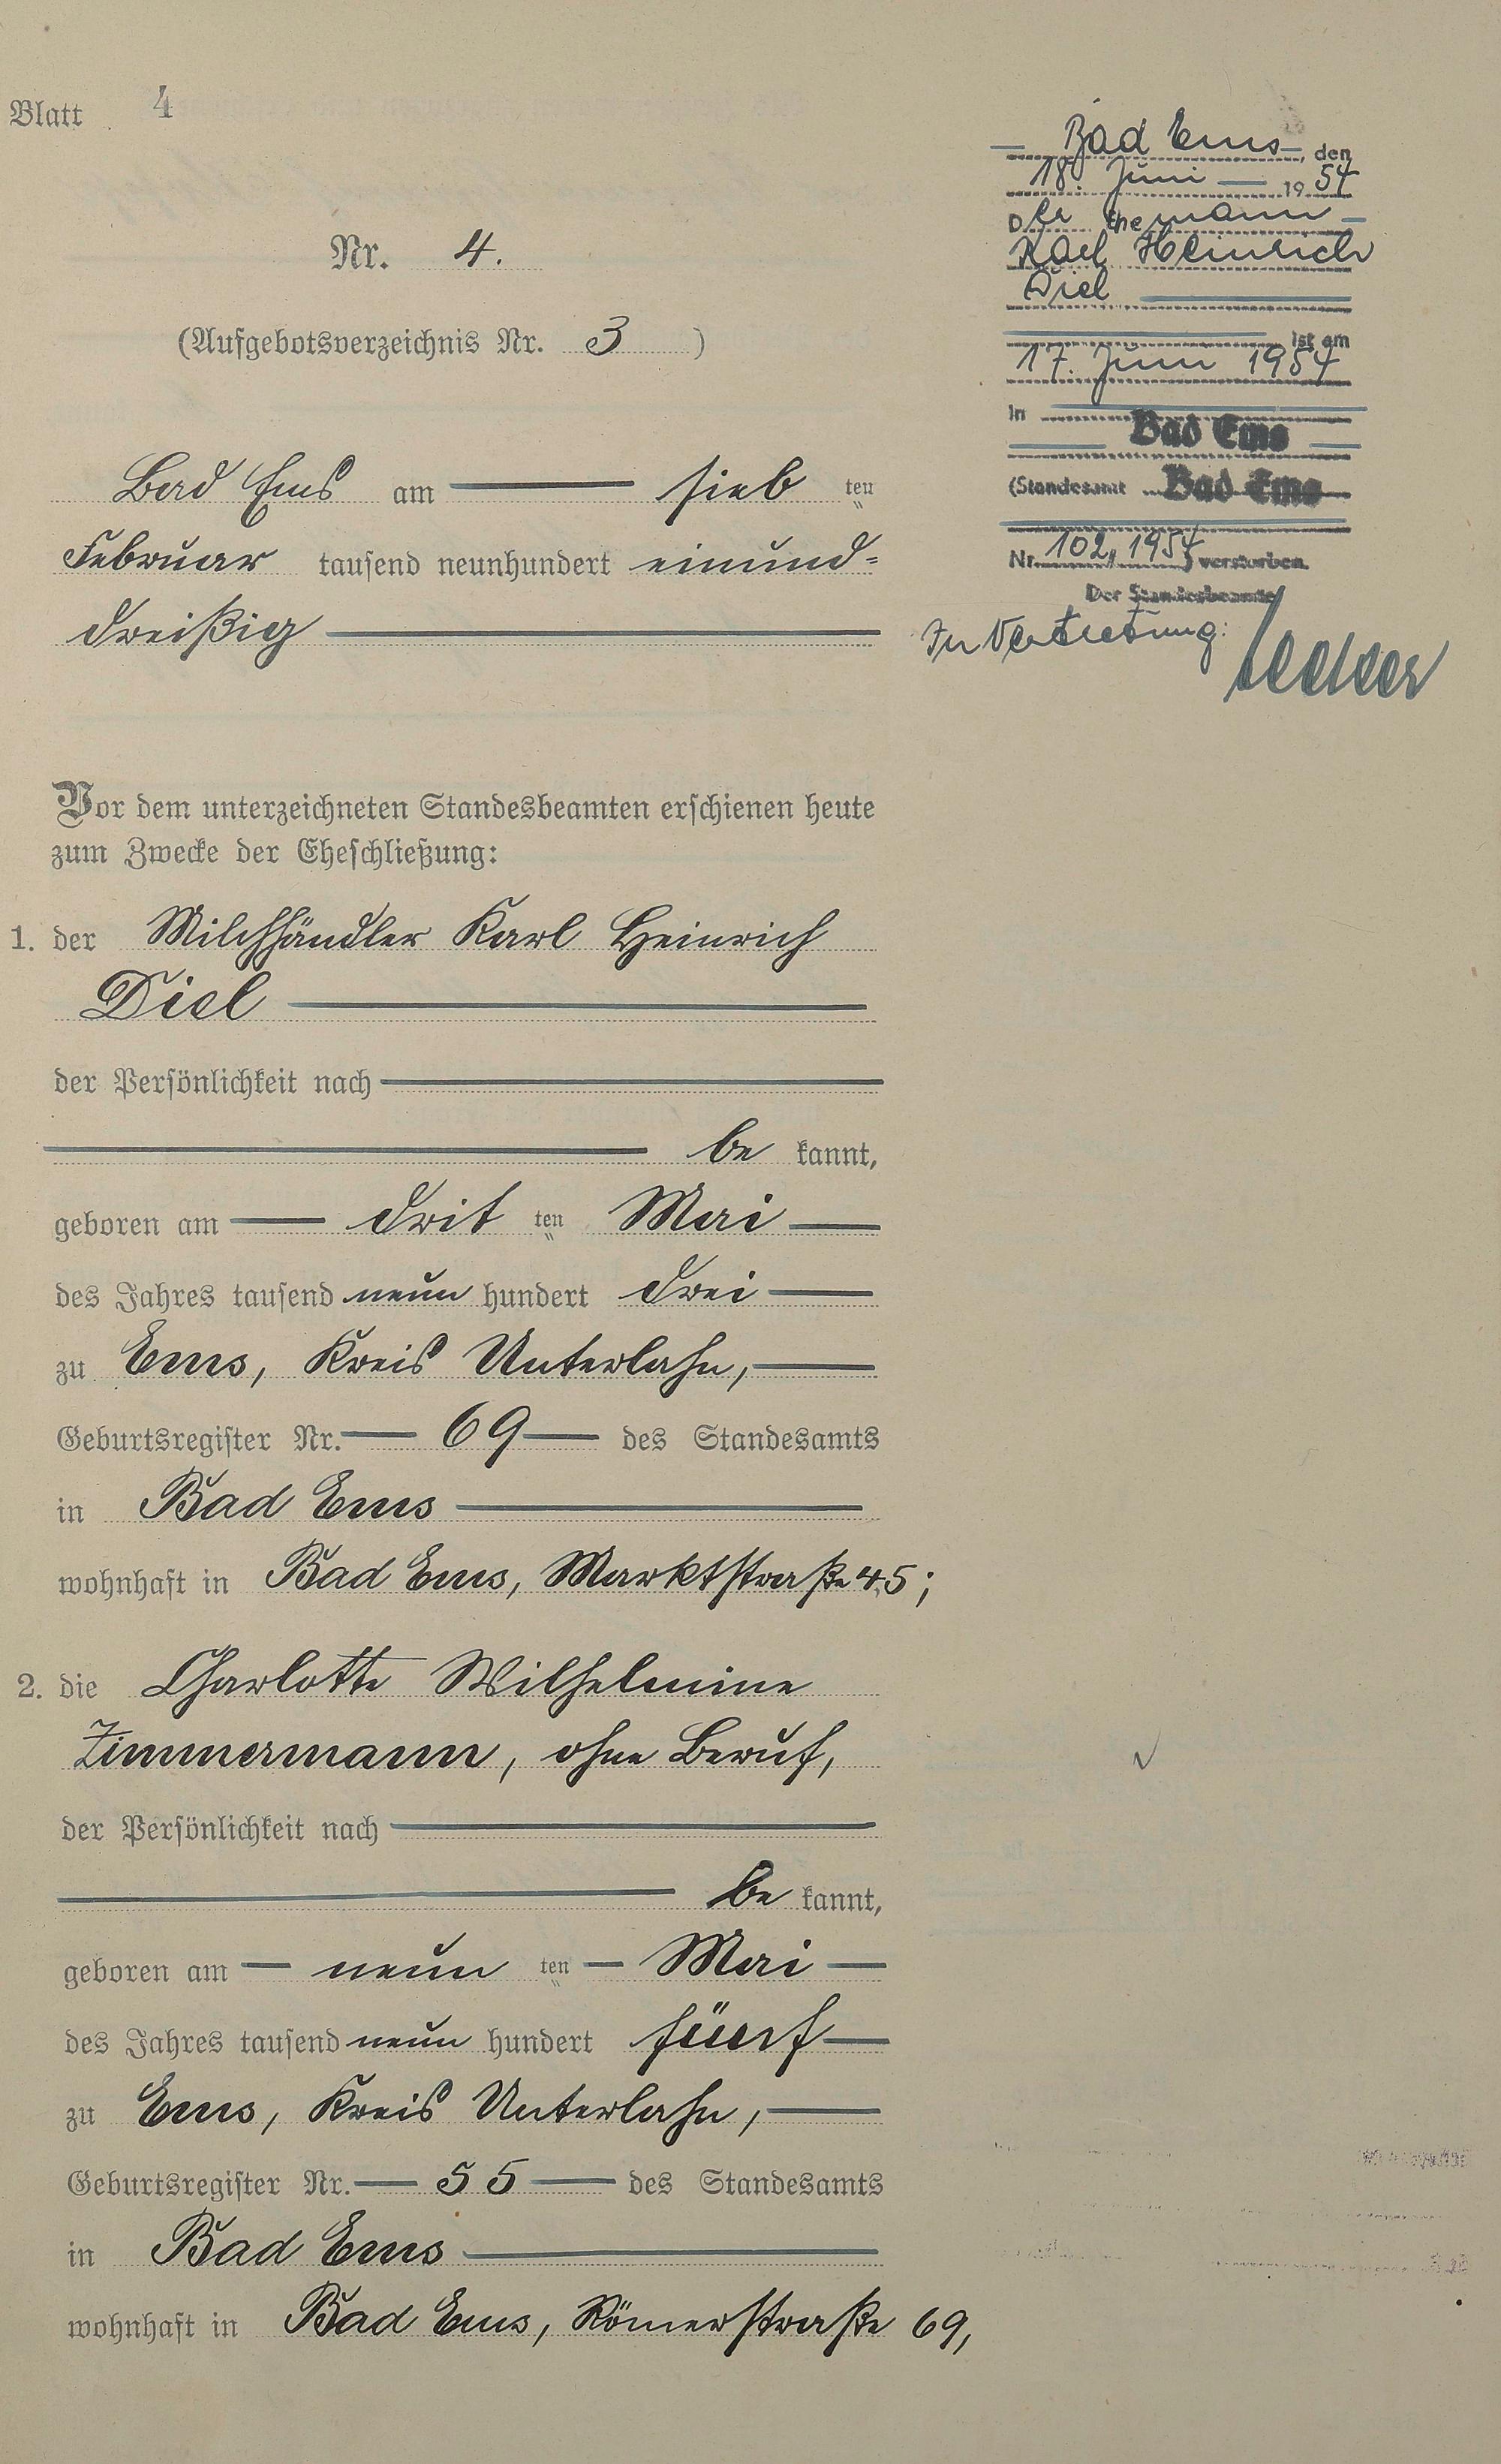 Blatt 4
Nr. 4.
(Aufgebotsverzeichnis Nr. 3 )
Bad Ems am sieb ten
Februar tausend neunhundert einund=
dreißig
Vor dem unterzeichneten Standesbeamten erschienen heute
zum Zwecke der Eheschließung:
1. der Milchhändler Karl Heinrich
Diel
der Persönlichkeit nach
be kannt,
geboren am drit ten Mai
des Jahres tausend neun hundert drei
zu Ems, Kreis Unterlahn,
Geburtsregister Nr. 69 des Standesamts
in Bad Ems
wohnhaft in Bad Ems, Marktstraße 45;
2. die Charlotte Wilhelmine
Zimmermann, ohne Beruf,
der Persönlichkeit nach
be kannt,
geboren am neun ten Mai
des Jahres tausend neun hundert fünf
zu Ems, Kreis Unterlahn,
Geburtsregister Nr. 55 des Standesamts
in Bad Ems
wohnhaft in Bad Ems, Römerstraße 69,
Bad Ems, den
18. Juni 19 54
Der Ehemann
Karl Heinrich
Diel
ist am
17. Juni 1954
in
Bad Ems
(Standesamt Bad Ems
Nr. 102, 1954) verstorben.
Der Standesbeamte
In Vertretung: